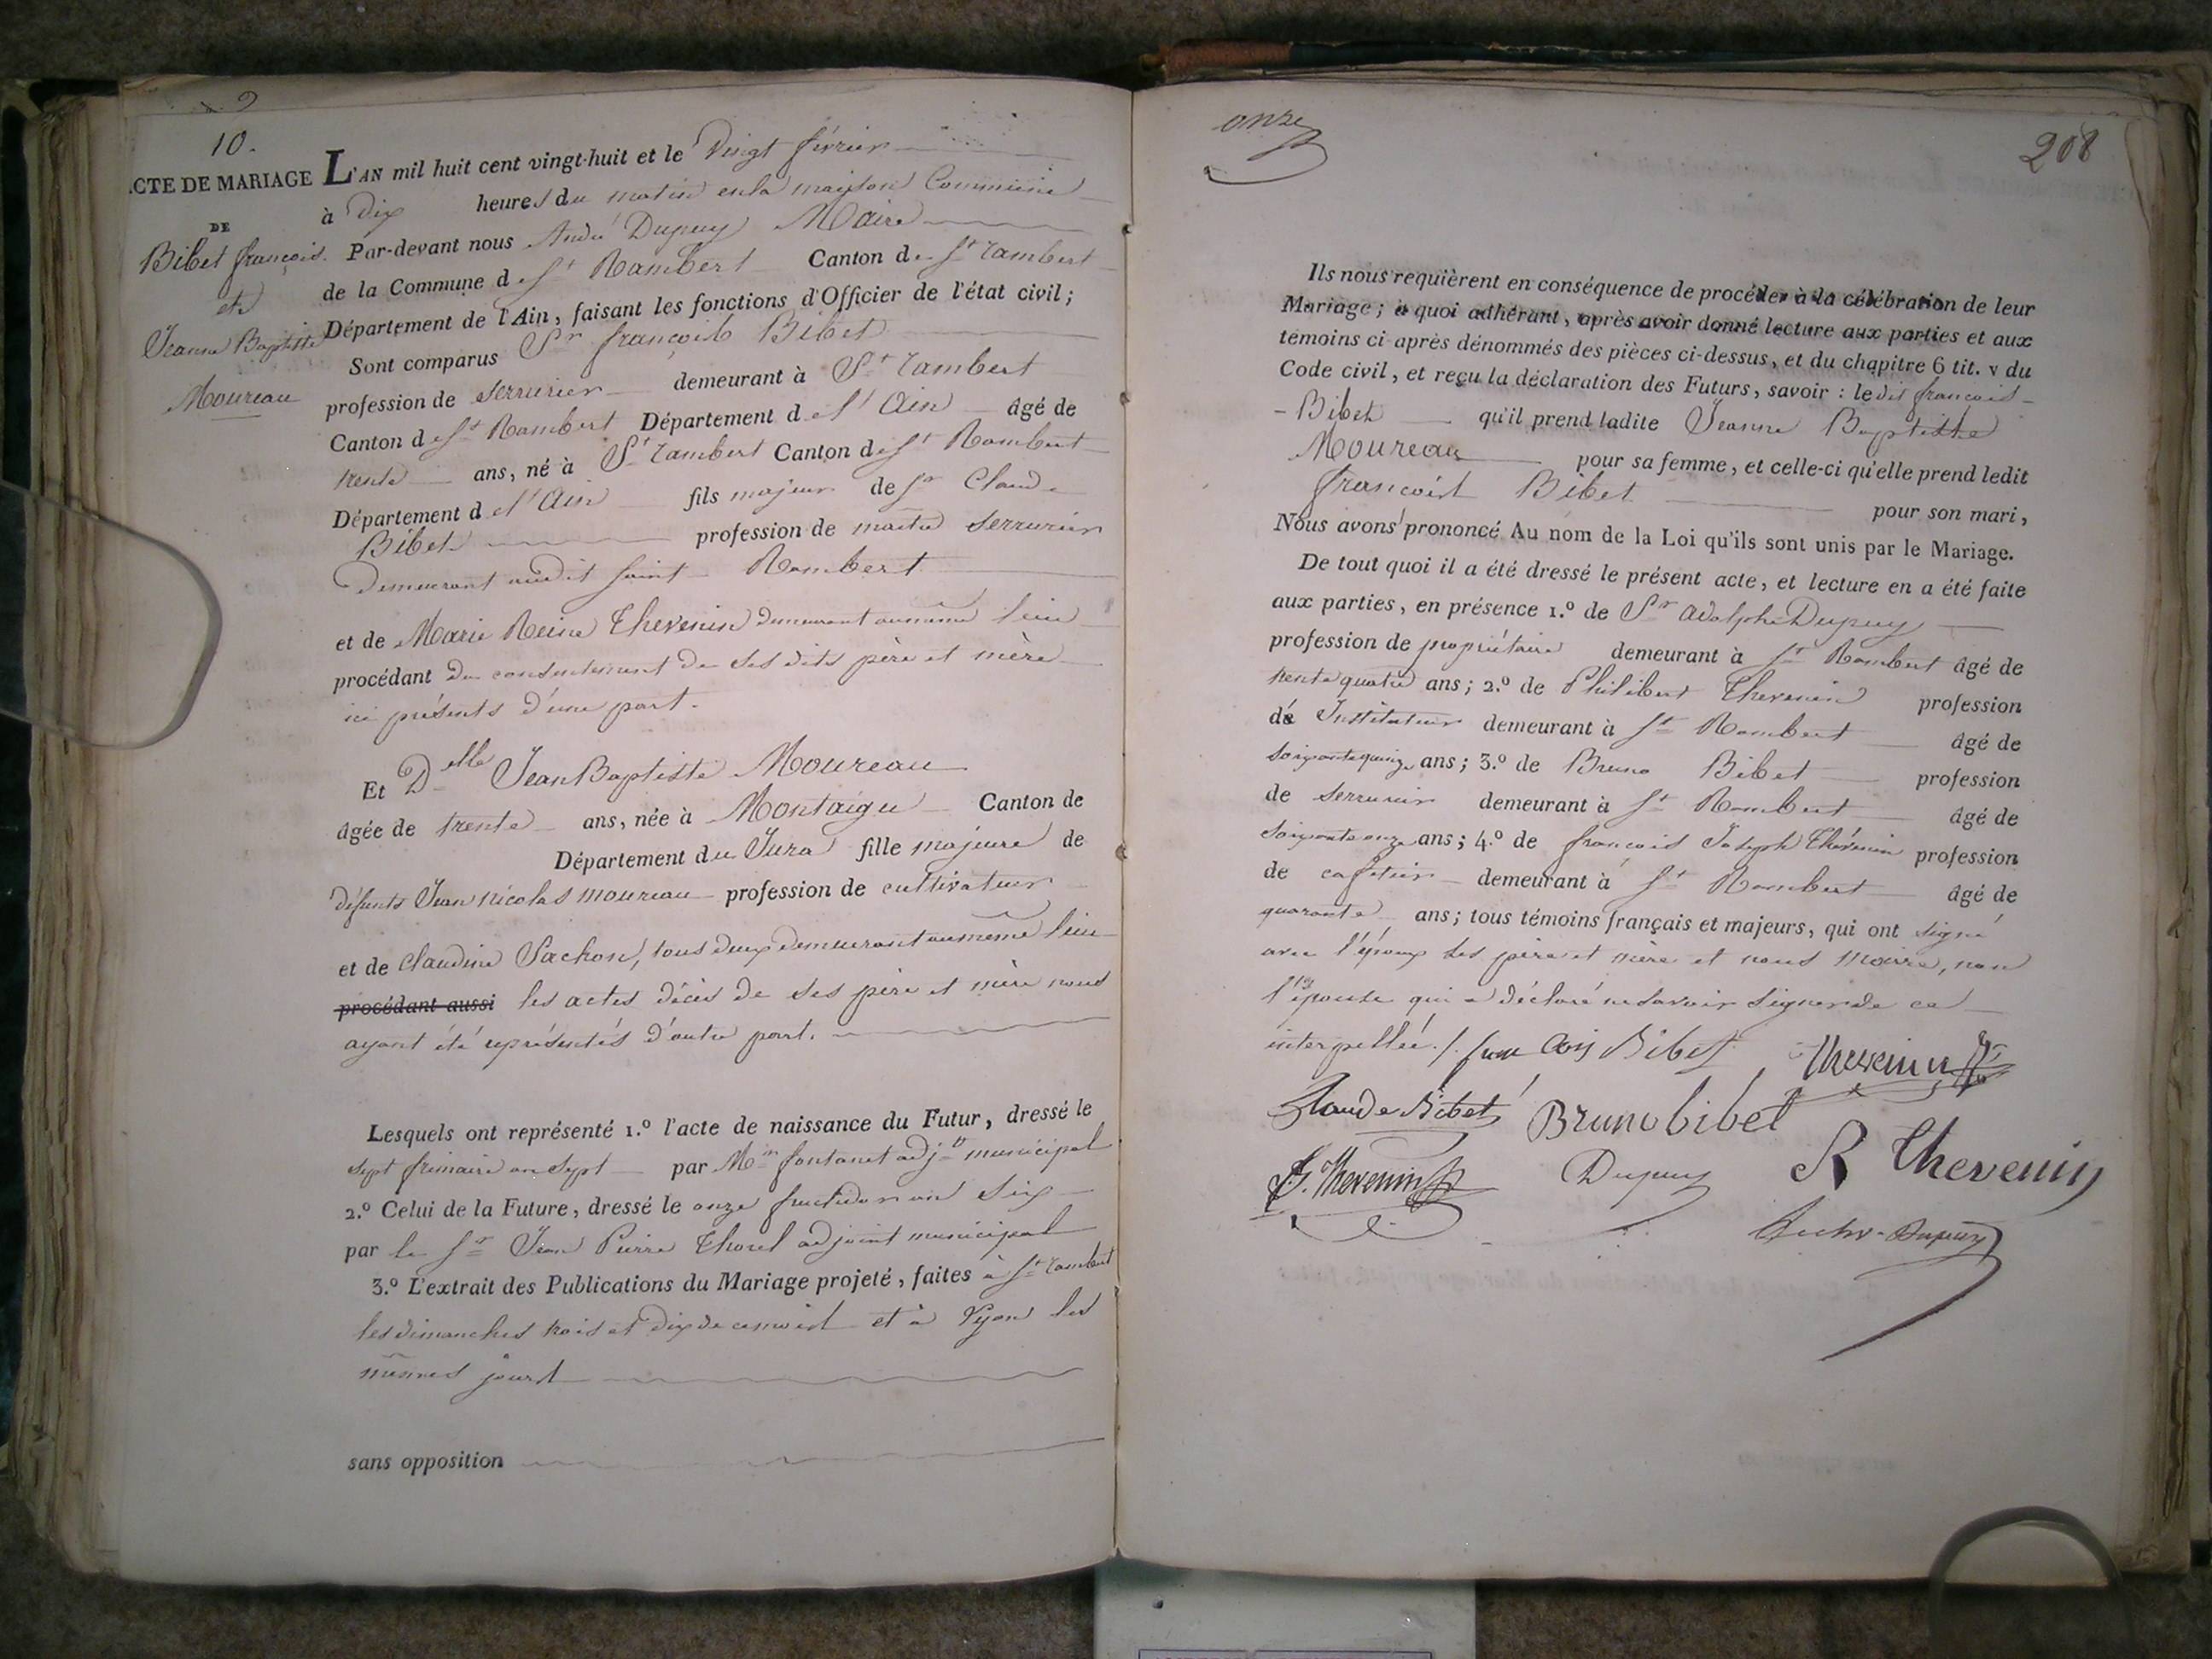 9
10.
ACTE DE MARIAGE
DE
Bibet françois.
et
Jeanne Baptiste
Moureau
L'AN mil huit cent vingt-huit et le Vingt février
à Dix heures du matin en la maison Commune
Par-devant nous André Dupuy Maire
de la Commune de St Rambert Canton de St rambert
Département de l'Ain, faisant les fonctions d'Officier de l'état civil;
Sont comparus Sr françois Bibet
profession de serrurier demeurant à St rambert
Canton de St Rambert Département de l'Ain âgé de
trente ans, né à St rambert Canton de St Rambert
Département de l'Ain fils majeur de Sr Claude
Bibet profession de maitre serrurier
Demeurant audit saint Rambert
et de Marie Reine Thevenin demeurant au même lieu
procédant du consentement de ses dits père et mère
ici présents d'une part.
Et Delle Jean Baptiste Moureau
âgée de trente ans, née à Montaigu Canton de
Département du Jura fille majeure de
défunts Jean nicolas moureau profession de cultivateur
et de Claudine Sachon, tous deux demeurant au même lieu
procédant aussi les actes décès de ses père et mère nous
ayant été représentés d'autre part.
Lesquels ont représenté 1.º l'acte de naissance du Futur, dressé le
sept frimaire an sept par Mr fontanet adjt municipal
2.º Celui de la Future, dressé le onze fructidor an six
par le Sr Jean Pierre Thorel adjoint municipal
3.º L'extrait des Publications du Mariage projeté, faites à St rambert
les dimanches trois et dix de ce mois et à Lyon les
mêmes jours
sans opposition
onze
208
Ils nous requièrent en conséquence de procéder à la célébration de leur
Mariage; à quoi adhérant, après avoir donné lecture aux parties et aux
témoins ci après dénommés des pièces ci-dessus, et du chapitre 6 tit. v du
Code civil, et reçu la déclaration des Futurs, savoir : le dit françois
Bibet qu'il prend ladite Jeanne Baptiste
Moureau pour sa femme, et celle-ci qu'elle prend ledit
françois Bibet pour son mari,
Nous avons prononcé Au nom de la Loi qu'ils sont unis par le Mariage.
De tout quoi il a été dressé le présent acte, et lecture en a été faite
aux parties, en présence 1.º de Sr adolphe Dupuy
profession de propriétaire demeurant à St Rambert âgé de
trente quatre ans; 2.º de Philibert Thevenin profession
de Instituteur demeurant à St Rambert âgé de
soixante quinze ans; 3.º de Bruno Bibet profession
de serrurier demeurant à St Rambert âgé de
soixante onze ans; 4.º de françois Joseph Thévenin profession
de cafetier demeurant à St Rambert âgé de
quarante ans; tous témoins français et majeurs, qui ont signé
avec l'époux ses père et mère et nous maire, non
l'épouse qui a déclaré ne savoir signer de ce
interpellée ./. françois Bibet Thevenin
Claude Bibet Bruno bibet
Thevenin Dupuy R Thevenin
Dupuy